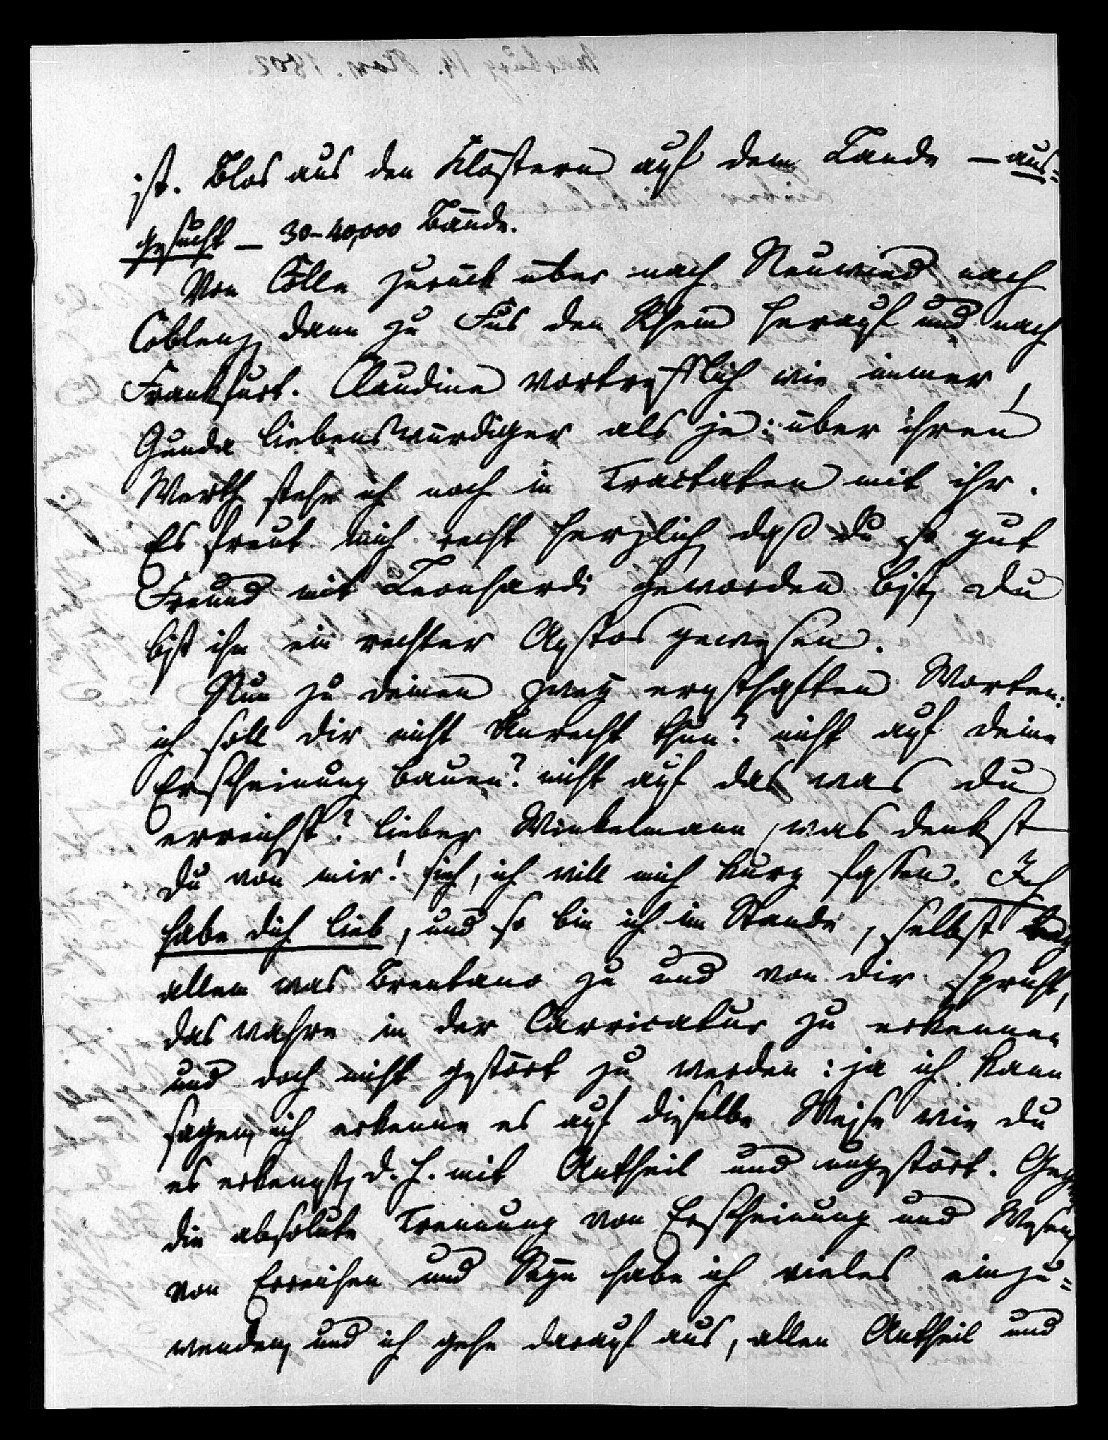 ist. Blos aus den Klöstern auf dem Lande — aus-
gesucht — 30-40,000 Bände.
Von Cölln zurück über nach Neuwied nach
Coblenz, dann zu Fus den Rhein herauf und nach
Frankfurt. Claudine vortrefflich wie immer,
Gunda liebenswürdiger als je: über ihren
Werth stehe ich noch in Tractaten mit ihr.
Es freut mich recht herzlich, daß du so gut
Freund mit Leonhardi geworden bist, du
bist ihm ein rechter gewesen.
Nun zu deinen zwey ernsthaften Worten:
ich soll dir nicht Unrecht thun? nicht auf deine
Erscheinung bauen? nicht auf das was du
erreichst? lieber Winkelmann, was denkst
du von mir! sieh, ich will mich kurz fassen. Ich
habe dich lieb, und so bin ich im Stande, selbst
allem was Brentano zu und von dir spricht,
das wahre in der Carricatur zu erkennen
und doch nicht gestört zu werden: ja ich kann
sagen, ich erkenne es auf dieselbe Weise wie du
es erkennst, d. h. mit Antheil und ungestört. Gegen
die absolute Trennung von Erscheinung und Wesen,
von Erreichen und Seyn habe ich vieles einzu-
wenden, und ich gehe darauf aus, allen Antheil und